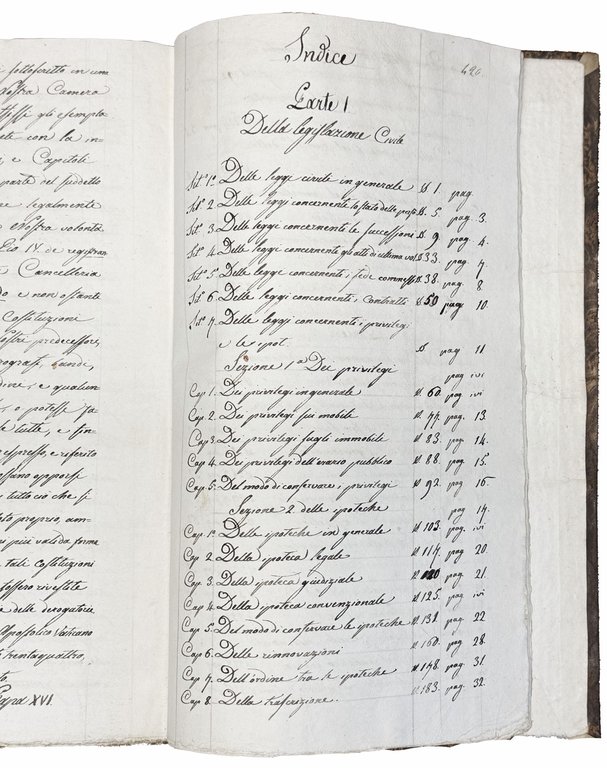 sottoscritto in una
nostra Camera
stessi gli esempla
con la in
e Capitoli
parte del suddetto
re legalmente
nostra volontà
Pio IV. de registran
Cancelleria
do e non ostante
Costituzioni
nostri predecessori,
ografi, bandi,
dine, e qualun
o potesse fa
le tutte, e sin
espresso, e riferito
essano opporsi
tutto ciò che si
oto proprio am-
ni più valida forma
tali costituzioni
fossero rivestite
e delle derogatorie
Apostolico Vaticano
trentaquattro,
Papa XVI.
420
Indice
Parte I
Della legislazione Civile
Tit.° 1.° Delle leggi civili in generale § 1. pag.
Tit.° 2 Delle leggi concernenti lo stato delle pers § 5. pag 3.
Tit.° 3 Delle leggi concernenti le successioni § 9 pag. 4.
Tit.° 4 Delle leggi concernenti gli atti di ultima vol § 33. pag. 7
Tit.° 5 Delle leggi concernenti i fede commessi § 38. pag 8
Tit.° 6 Delle leggi concernenti i contratti § 50 pag 10.
Tit.° 7. Delle leggi concernenti i privilegi
e le ipot. § pag 11.
Sezione 1.a Dei privilegi pag ivi
Cap 1. Dei privilegi in generale § 60. pag. ivi
Cap. 2. Dei privilegi sui mobile § 77. pag. 13.
Cap 3. Dei privilegi sugli immobile § 83. pag. 14.
Cap 4. Dei privilegi dell'erario pubblico § 88. pag. 15.
Cap 5. Del modo di conservare i privilegi § 92. pag 16.
Sezione 2 delle ipoteche pag 17.
Cap 1.° Delle ipoteche in generale § 103. pag. ivi
Cap 2. Della ipoteca legale § 114. pag 20.
Cap 3. Della ipoteca giudiziale § 120 pag. 21.
Cap 4. Della ipoteca convenzionale § 125. pag ivi
Cap 5. Del modo di conservare le ipoteche § 131. pag 22
Cap 6. Delle rinnovazioni § 160. pag 28.
Cap 7. Dell'ordine tra le ipoteche § 178. pag 31.
Cap 8. Della trascrizione. § 183. pag 32.